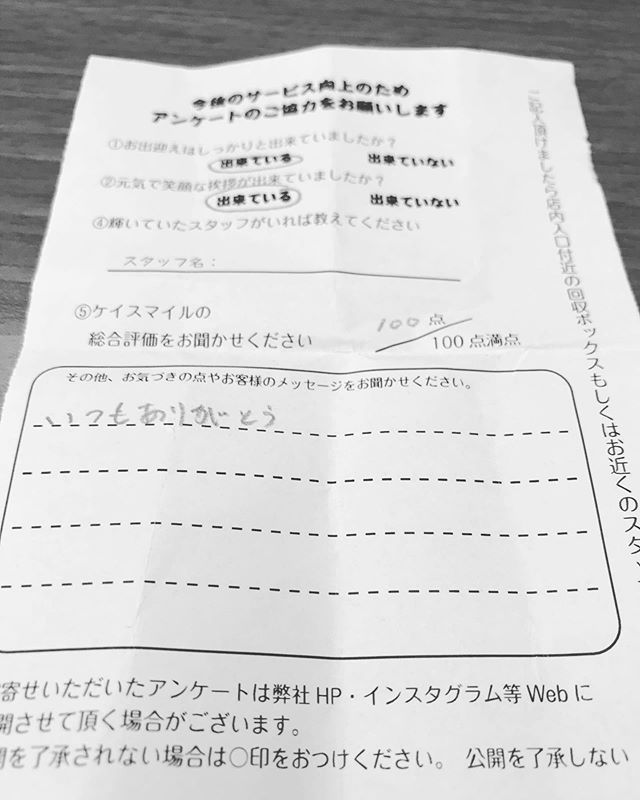 今後のサービス向上のため
アンケートのご協力をお願いします
①お出迎えはしっかりと出来ていましたか？
出来ている 出来ていない
②元気で笑顔な挨拶が出来ていましたか？
出来ている 出来ていない
④輝いていたスタッフがいれば教えてください
スタッフ名：
⑤ケイスマイルの
総合評価をお聞かせください
100点
100点満点
その他、お気づきの点やお客様のメッセージをお聞かせください。
いつもありがとう
寄せいただいたアンケートは弊社HP・インスタグラム等Webに
開させて頂く場合がございます。
開を了承されない場合は○印をおつけください。 公開を了承しない
ご記入頂けましたら店内入口付近の回収ボックスもしくはお近くのスタッ